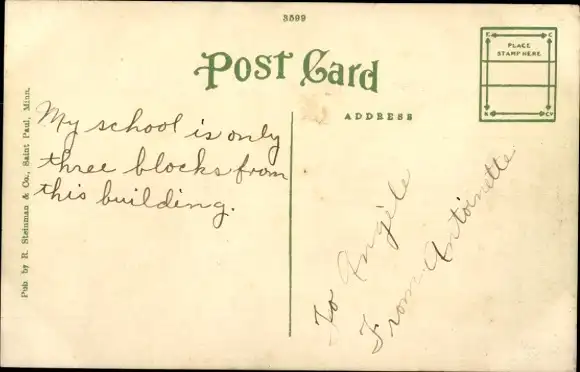 3599
POST CARD
ADDRESS
PLACE
STAMP HERE
My school is only
three blocks from
this building.
To Angèle
From Antoinette
Pub by R. Steinman & Co., Saint Paul, Minn.